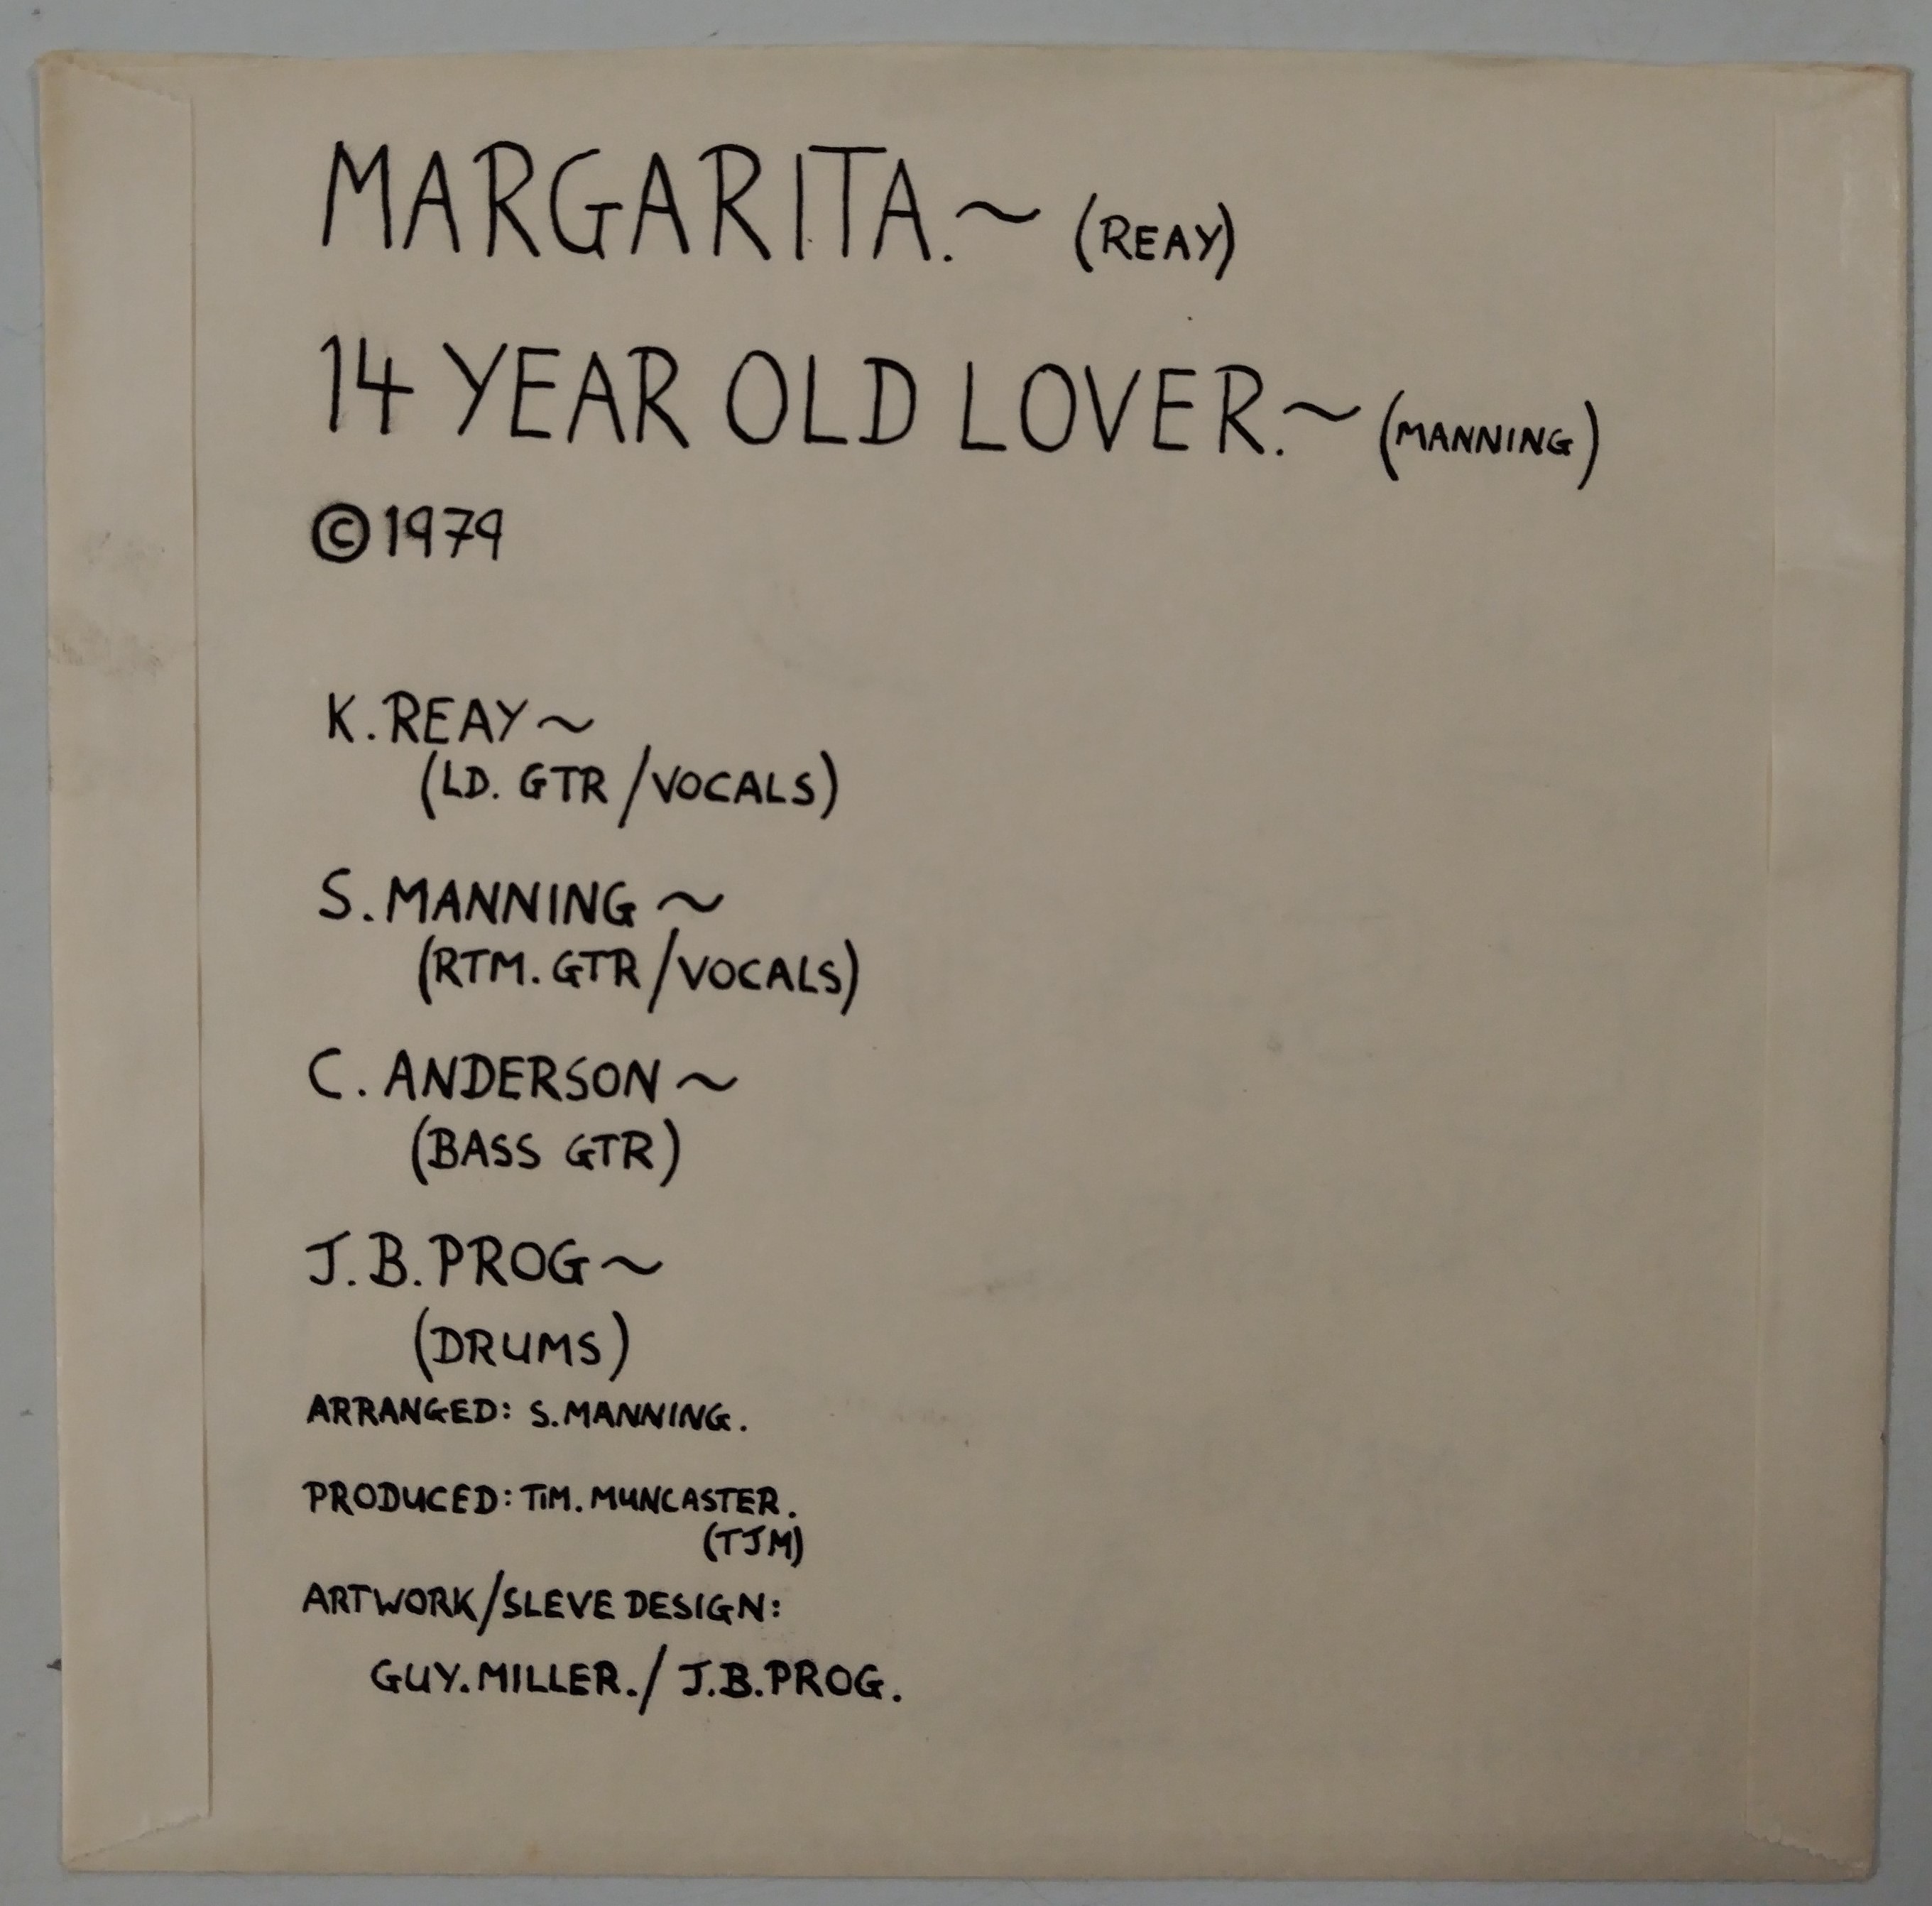 MARGARITA.~ (REAY)
14 YEAR OLD LOVER.~ (MANNING)
©1979
K. REAY~
(LD. GTR/VOCALS)
S. MANNING~
(RTM. GTR/VOCALS)
C. ANDERSON~
(BASS GTR)
J. B. PROG~
(DRUMS)
ARRANGED: S. MANNING.
PRODUCED: TIM. MUNCASTER.
(TJM)
ARTWORK/SLEVE DESIGN:
GUY. MILLER./ J.B. PROG.